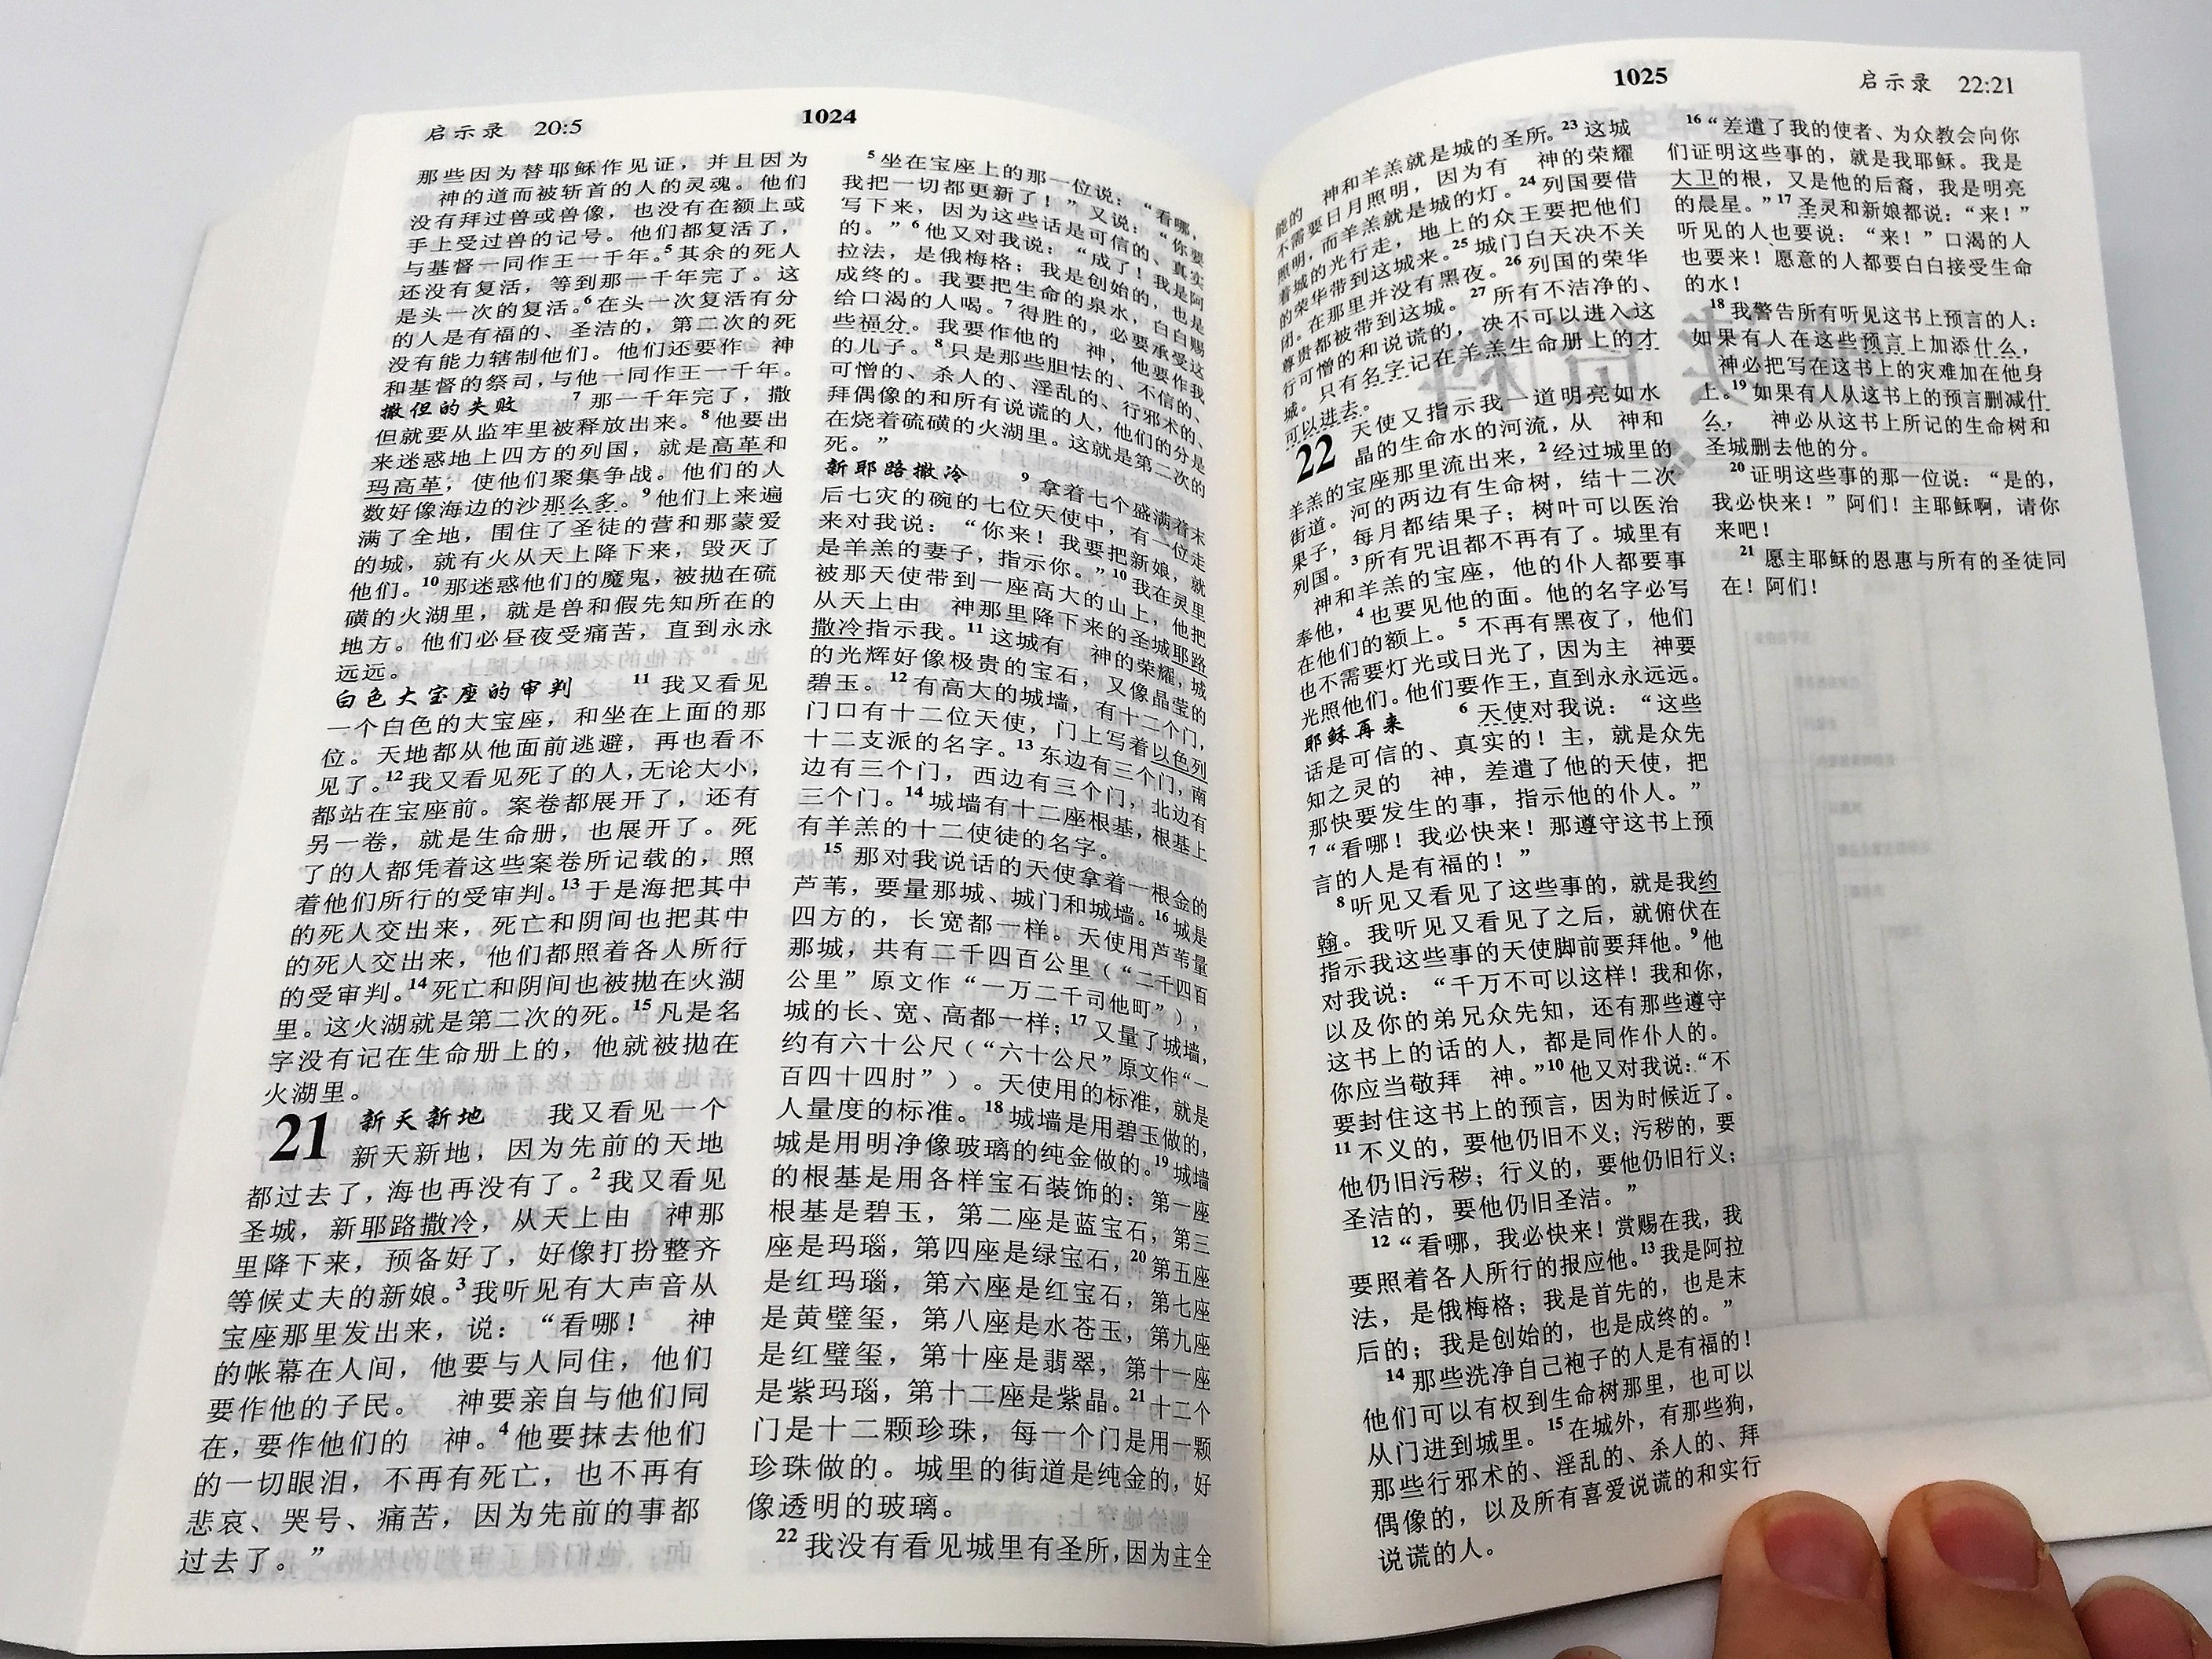 启示录 20:5
1024
那些因为替耶稣作见证，并且因为
神的道而被斩首的人的灵魂。他们
没有拜过兽或兽像，也没有在额上或
手上受过兽的记号。他们都复活了，
与基督一同作王一千年。5 其余的死人
还没有复活，等到那一千年完了。这
是头一次的复活。6 在头一次复活有分
的人是有福的、圣洁的，第二次的死
没有能力辖制他们。他们还要作　神
和基督的祭司，与他一同作王一千年。
撒但的失败　7 那一千年完了，撒
但就要从监牢里被释放出来。8 他要出
来迷惑地上四方的列国，就是高革和
玛高革，使他们聚集争战。他们的人
数好像海边的沙那么多。9 他们上来遍
满了全地，围住了圣徒的营和那蒙爱
的城，就有火从天上降下来，毁灭了
他们。10 那迷惑他们的魔鬼，被抛在硫
磺的火湖里，就是兽和假先知所在的
地方。他们必昼夜受痛苦，直到永永
远远。
白色大宝座的审判　11 我又看见
一个白色的大宝座，和坐在上面的那
位。天地都从他面前逃避，再也看不
见了。12 我又看见死了的人，无论大小，
都站在宝座前。案卷都展开了，还有
另一卷，就是生命册，也展开了。死
了的人都凭着这些案卷所记载的，照
着他们所行的受审判。13 于是海把其中
的死人交出来，死亡和阴间也把其中
的死人交出来，他们都照着各人所行
的受审判。14 死亡和阴间也被抛在火湖
里。这火湖就是第二次的死。15 凡是名
字没有记在生命册上的，他就被抛在
火湖里。
21 新天新地　我又看见一个
新天新地，因为先前的天地
都过去了，海也再没有了。2 我又看见
圣城，新耶路撒冷，从天上由　神那
里降下来，预备好了，好像打扮整齐
等候丈夫的新娘。3 我听见有大声音从
宝座那里发出来，说：“看哪！　神
的帐幕在人间，他要与人同住，他们
要作他的子民。　神要亲自与他们同
在，要作他们的　神。4 他要抹去他们
的一切眼泪，不再有死亡，也不再有
悲哀、哭号、痛苦，因为先前的事都
过去了。”
5 坐在宝座上的那一位说：“看哪，
我把一切都更新了！”又说：“你要
写下来，因为这些话是可信的、真实
的。”6 他又对我说：“成了！我是阿
拉法，是俄梅格；我是创始的，也是
成终的。我要把生命的泉水，白白赐
给口渴的人喝。7 得胜的，必要承受这
些福分。我要作他的　神，他要作我
的儿子。8 只是那些胆怯的、不信的、
可憎的、杀人的、淫乱的、行邪术的、
拜偶像的和所有说谎的人，他们的分是
在烧着硫磺的火湖里。这就是第二次的
死。”
新耶路撒冷　9 拿着七个盛满着末
后七灾的碗的七位天使中，有一位走
来对我说：“你来！我要把新娘，就
是羊羔的妻子，指示你。”10 我在灵里
被那天使带到一座高大的山上，他把
从天上由　神那里降下来的圣城耶路
撒冷指示我。11 这城有　神的荣耀，城
的光辉好像极贵的宝石，又像晶莹的
碧玉。12 有高大的城墙，有十二个门，
门口有十二位天使，门上写着以色列
十二支派的名字。13 东边有三个门，南
边有三个门，西边有三个门，北边有
三个门。14 城墙有十二座根基，根基上
有羊羔的十二使徒的名字。
15 那对我说话的天使拿着一根金的
芦苇，要量那城、城门和城墙。16 城是
四方的，长宽都一样。天使用芦苇量
那城，共有二千四百公里（“二千四百
公里”原文作“一万二千司他町”），
城的长、宽、高都一样；17 又量了城墙，
约有六十公尺（“六十公尺”原文作“一
百四十四肘”）。天使用的标准，就是
人量度的标准。18 城墙是用碧玉做的，
城是用明净像玻璃的纯金做的。19 城墙
的根基是用各样宝石装饰的：第一座
根基是碧玉，第二座是蓝宝石，第三
座是玛瑙，第四座是绿宝石，20 第五座
是红玛瑙，第六座是红宝石，第七座
是黄璧玺，第八座是水苍玉，第九座
是红璧玺，第十座是翡翠，第十一座
是紫玛瑙，第十二座是紫晶。21 十二个
门是十二颗珍珠，每一个门是用一颗
珍珠做的。城里的街道是纯金的，好
像透明的玻璃。
22 我没有看见城里有圣所，因为主全
1025
启示录 22:21
能的　神和羊羔就是城的圣所。23 这城
不需要日月照明，因为有　神的荣耀
照明，而羊羔就是城的灯。24 列国要借
着城的光行走，地上的众王要把他们
的荣华带到这城来。25 城门白天决不关
闭。在那里并没有黑夜。26 列国的荣华
尊贵都被带到这城。27 所有不洁净的、
行可憎的和说谎的，决不可以进入这
城。只有名字记在羊羔生命册上的才
可以进去。
22 天使又指示我一道明亮如水
晶的生命水的河流，从　神和
羊羔的宝座那里流出来，2 经过城里的
街道。河的两边有生命树，结十二次
果子，每月都结果子；树叶可以医治
列国。3 所有咒诅都不再有了。城里有
神和羊羔的宝座，他的仆人都要事
奉他，4 也要见他的面。他的名字必写
在他们的额上。5 不再有黑夜了，他们
也不需要灯光或日光了，因为主　神要
光照他们。他们要作王，直到永永远远。
耶稣再来　6 天使对我说：“这些
话是可信的、真实的！主，就是众先
知之灵的　神，差遣了他的天使，把
那快要发生的事，指示他的仆人。”
7 “看哪！我必快来！那遵守这书上预
言的人是有福的！”
8 听见又看见了这些事的，就是我约
翰。我听见又看见了之后，就俯伏在
指示我这些事的天使脚前要拜他。9 他
对我说：“千万不可以这样！我和你，
以及你的弟兄众先知，还有那些遵守
这书上的话的人，都是同作仆人的。
你应当敬拜　神。”10 他又对我说：“不
要封住这书上的预言，因为时候近了。
11 不义的，要他仍旧不义；污秽的，要
他仍旧污秽；行义的，要他仍旧行义；
圣洁的，要他仍旧圣洁。”
12 “看哪，我必快来！赏赐在我，我
要照着各人所行的报应他。13 我是阿拉
法，是俄梅格；我是首先的，也是末
后的；我是创始的，也是成终的。”
14 那些洗净自己袍子的人是有福的！
他们可以有权到生命树那里，也可以
从门进到城里。15 在城外，有那些狗，
那些行邪术的、淫乱的、杀人的、拜
偶像的，以及所有喜爱说谎的和实行
说谎的人。
16 “差遣了我的使者、为众教会向你
们证明这些事的，就是我耶稣。我是
大卫的根，又是他的后裔，我是明亮
的晨星。”17 圣灵和新娘都说：“来！”
听见的人也要说：“来！”口渴的人
也要来！愿意的人都要白白接受生命
的水！
18 我警告所有听见这书上预言的人：
如果有人在这些预言上加添什么，
神必把写在这书上的灾难加在他身
上。19 如果有人从这书上的预言删减什
么，　神必从这书上所记的生命树和
圣城删去他的分。
20 证明这些事的那一位说：“是的，
我必快来！”阿们！主耶稣啊，请你
来吧！
21 愿主耶稣的恩惠与所有的圣徒同
在！阿们！